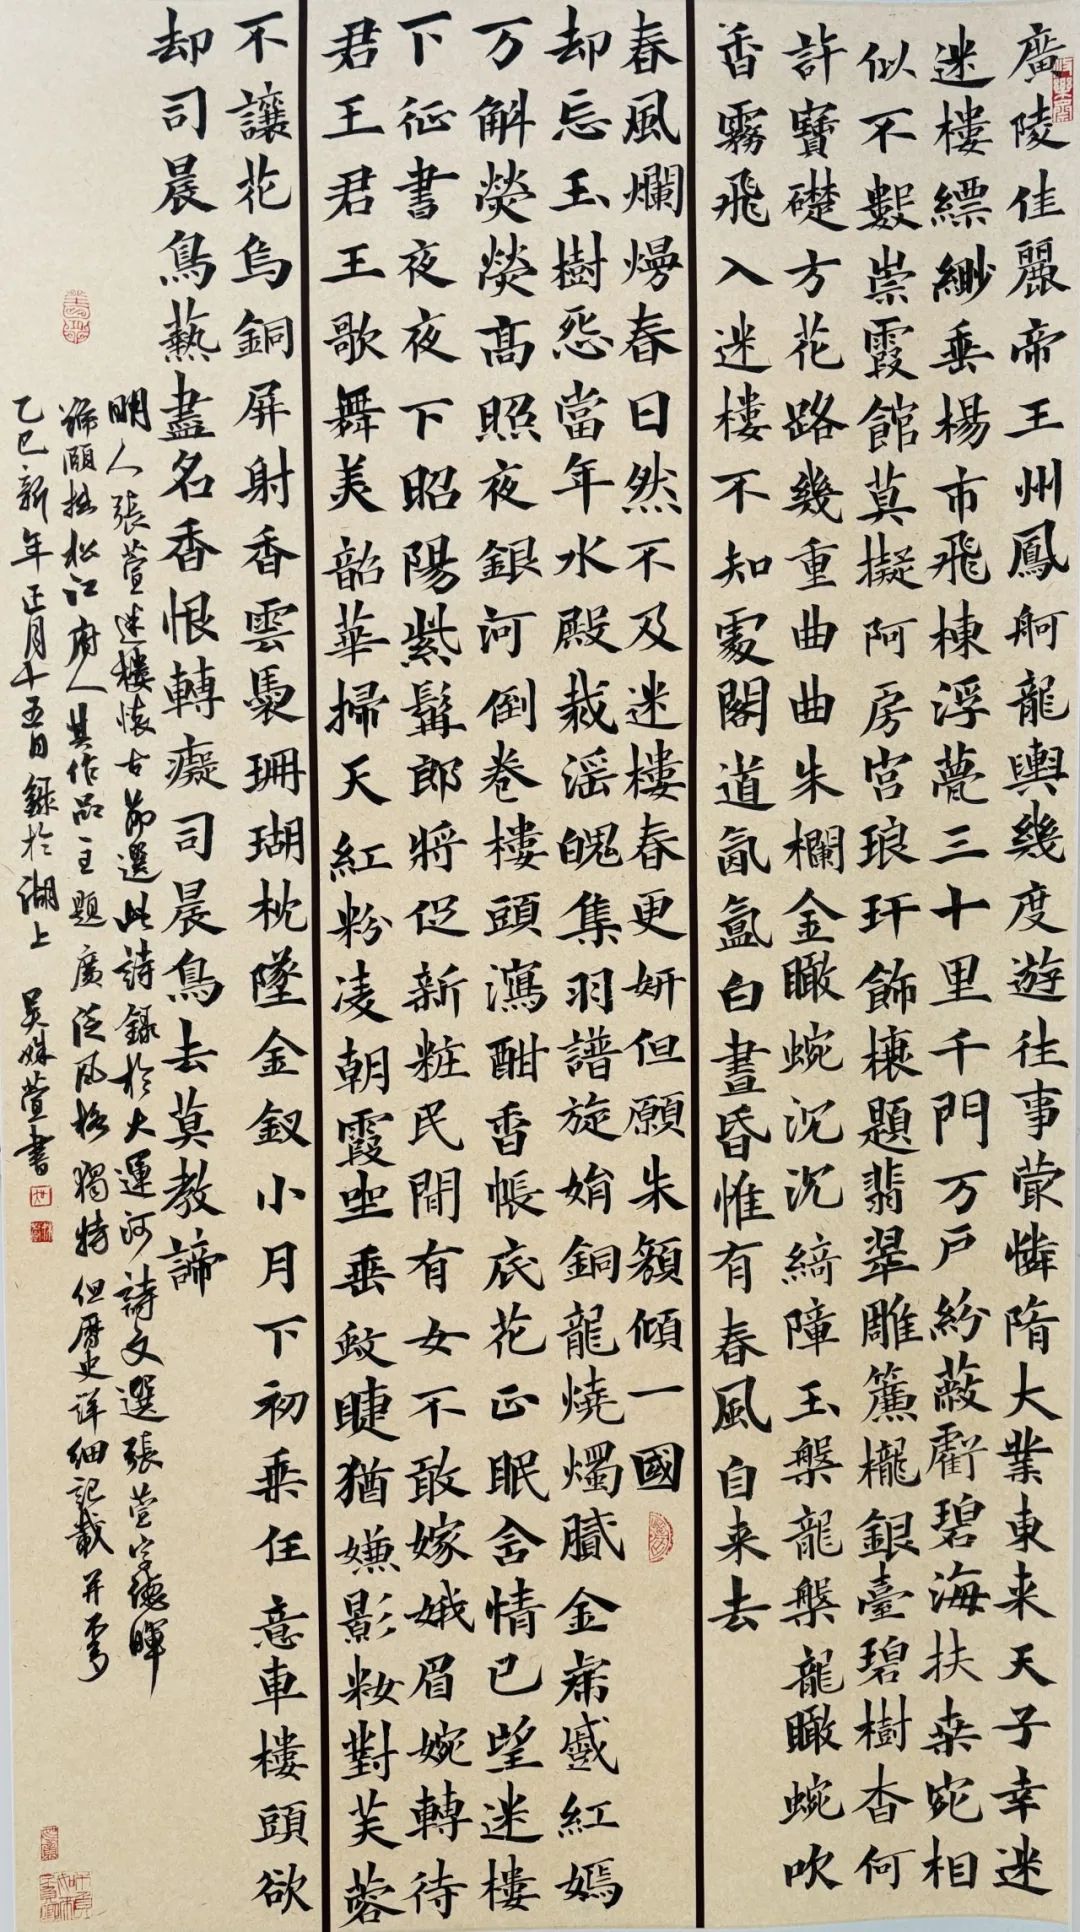 廣陵佳麗帝王州鳳舸龍輿幾度遊往事蒙憐隋大業東来天子幸迷
迷樓縹緲垂楊市飛棟浮甍三十里千門万戸紛蔽虧碧海扶桒宛相
似不數崇霞館莫擬阿房宮琅玕飾榱題翡翠雕簾櫳銀臺碧樹杳何
許寶礎方花路幾重曲曲朱欄金瞰蜿沉沉綺障玉槃龍槃龍瞰蜿吹
香霧飛入迷樓不知處閣道氤氳白晝昏惟有春風自来去
春風爛熳春日然不及迷樓春更妍但願朱顏傾一國
却忘玉樹怨當年水殿裁谣魄集羽譜旋娟銅龍燒燭膩金帟蹙紅嫣
万斛熒熒高照夜銀河倒卷樓頭瀉酣香帳底花正眠含情已望迷樓
下征書夜夜下昭陽紫髯郎將促新粧民間有女不敢嫁娥眉婉轉待
君王君王歌舞美韶華掃天紅粉凌朝霞坐垂蚊睫猶嫌影粧對芙蓉
不讓花烏銅屏射香雲裊珊瑚枕墜金釵小月下初乗任意車樓頭欲
却司晨鳥爇盡名香恨轉癡司晨鳥去莫教諦
明人張萱迷樓懷古節選此詩錄於大運河詩文選張萱字德暉
號頤拙松江府人其作品主題廣泛風格獨特但歷史詳細記載并不多
乙巳新年正月十五日錄於湖上 吴姝萱書